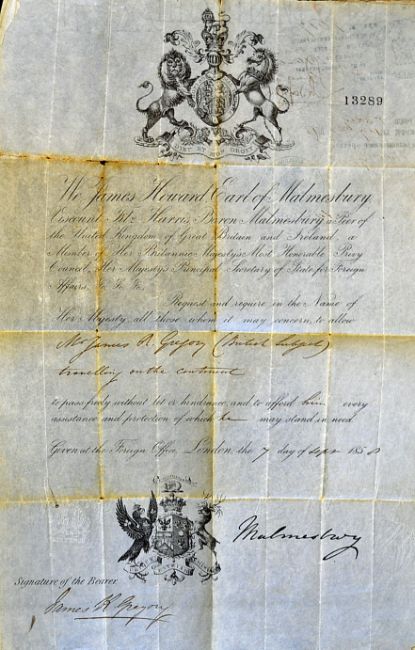 13289
DIEU ET MON DROIT
We James Howard Earl of Malmesbury,
Viscount Fitz Harris, Baron Malmesbury, a Peer of
the United Kingdom of Great Britain and Ireland, a
Member of Her Britannic Majesty's Most Honorable Privy
Council, Her Majesty's Principal Secretary of State for Foreign
Affairs, &c. &c. &c.
Request and require in the Name of
Her Majesty, all those whom it may concern, to allow
Mr James R. Gregory (British Subject)
travelling on the continent
to pass freely without let or hindrance, and to afford him every
assistance and protection of which he may stand in need.
Given at the Foreign Office, London, the 7 day of Sept 1858
Malmesbury
Signature of the Bearer.
James R Gregory